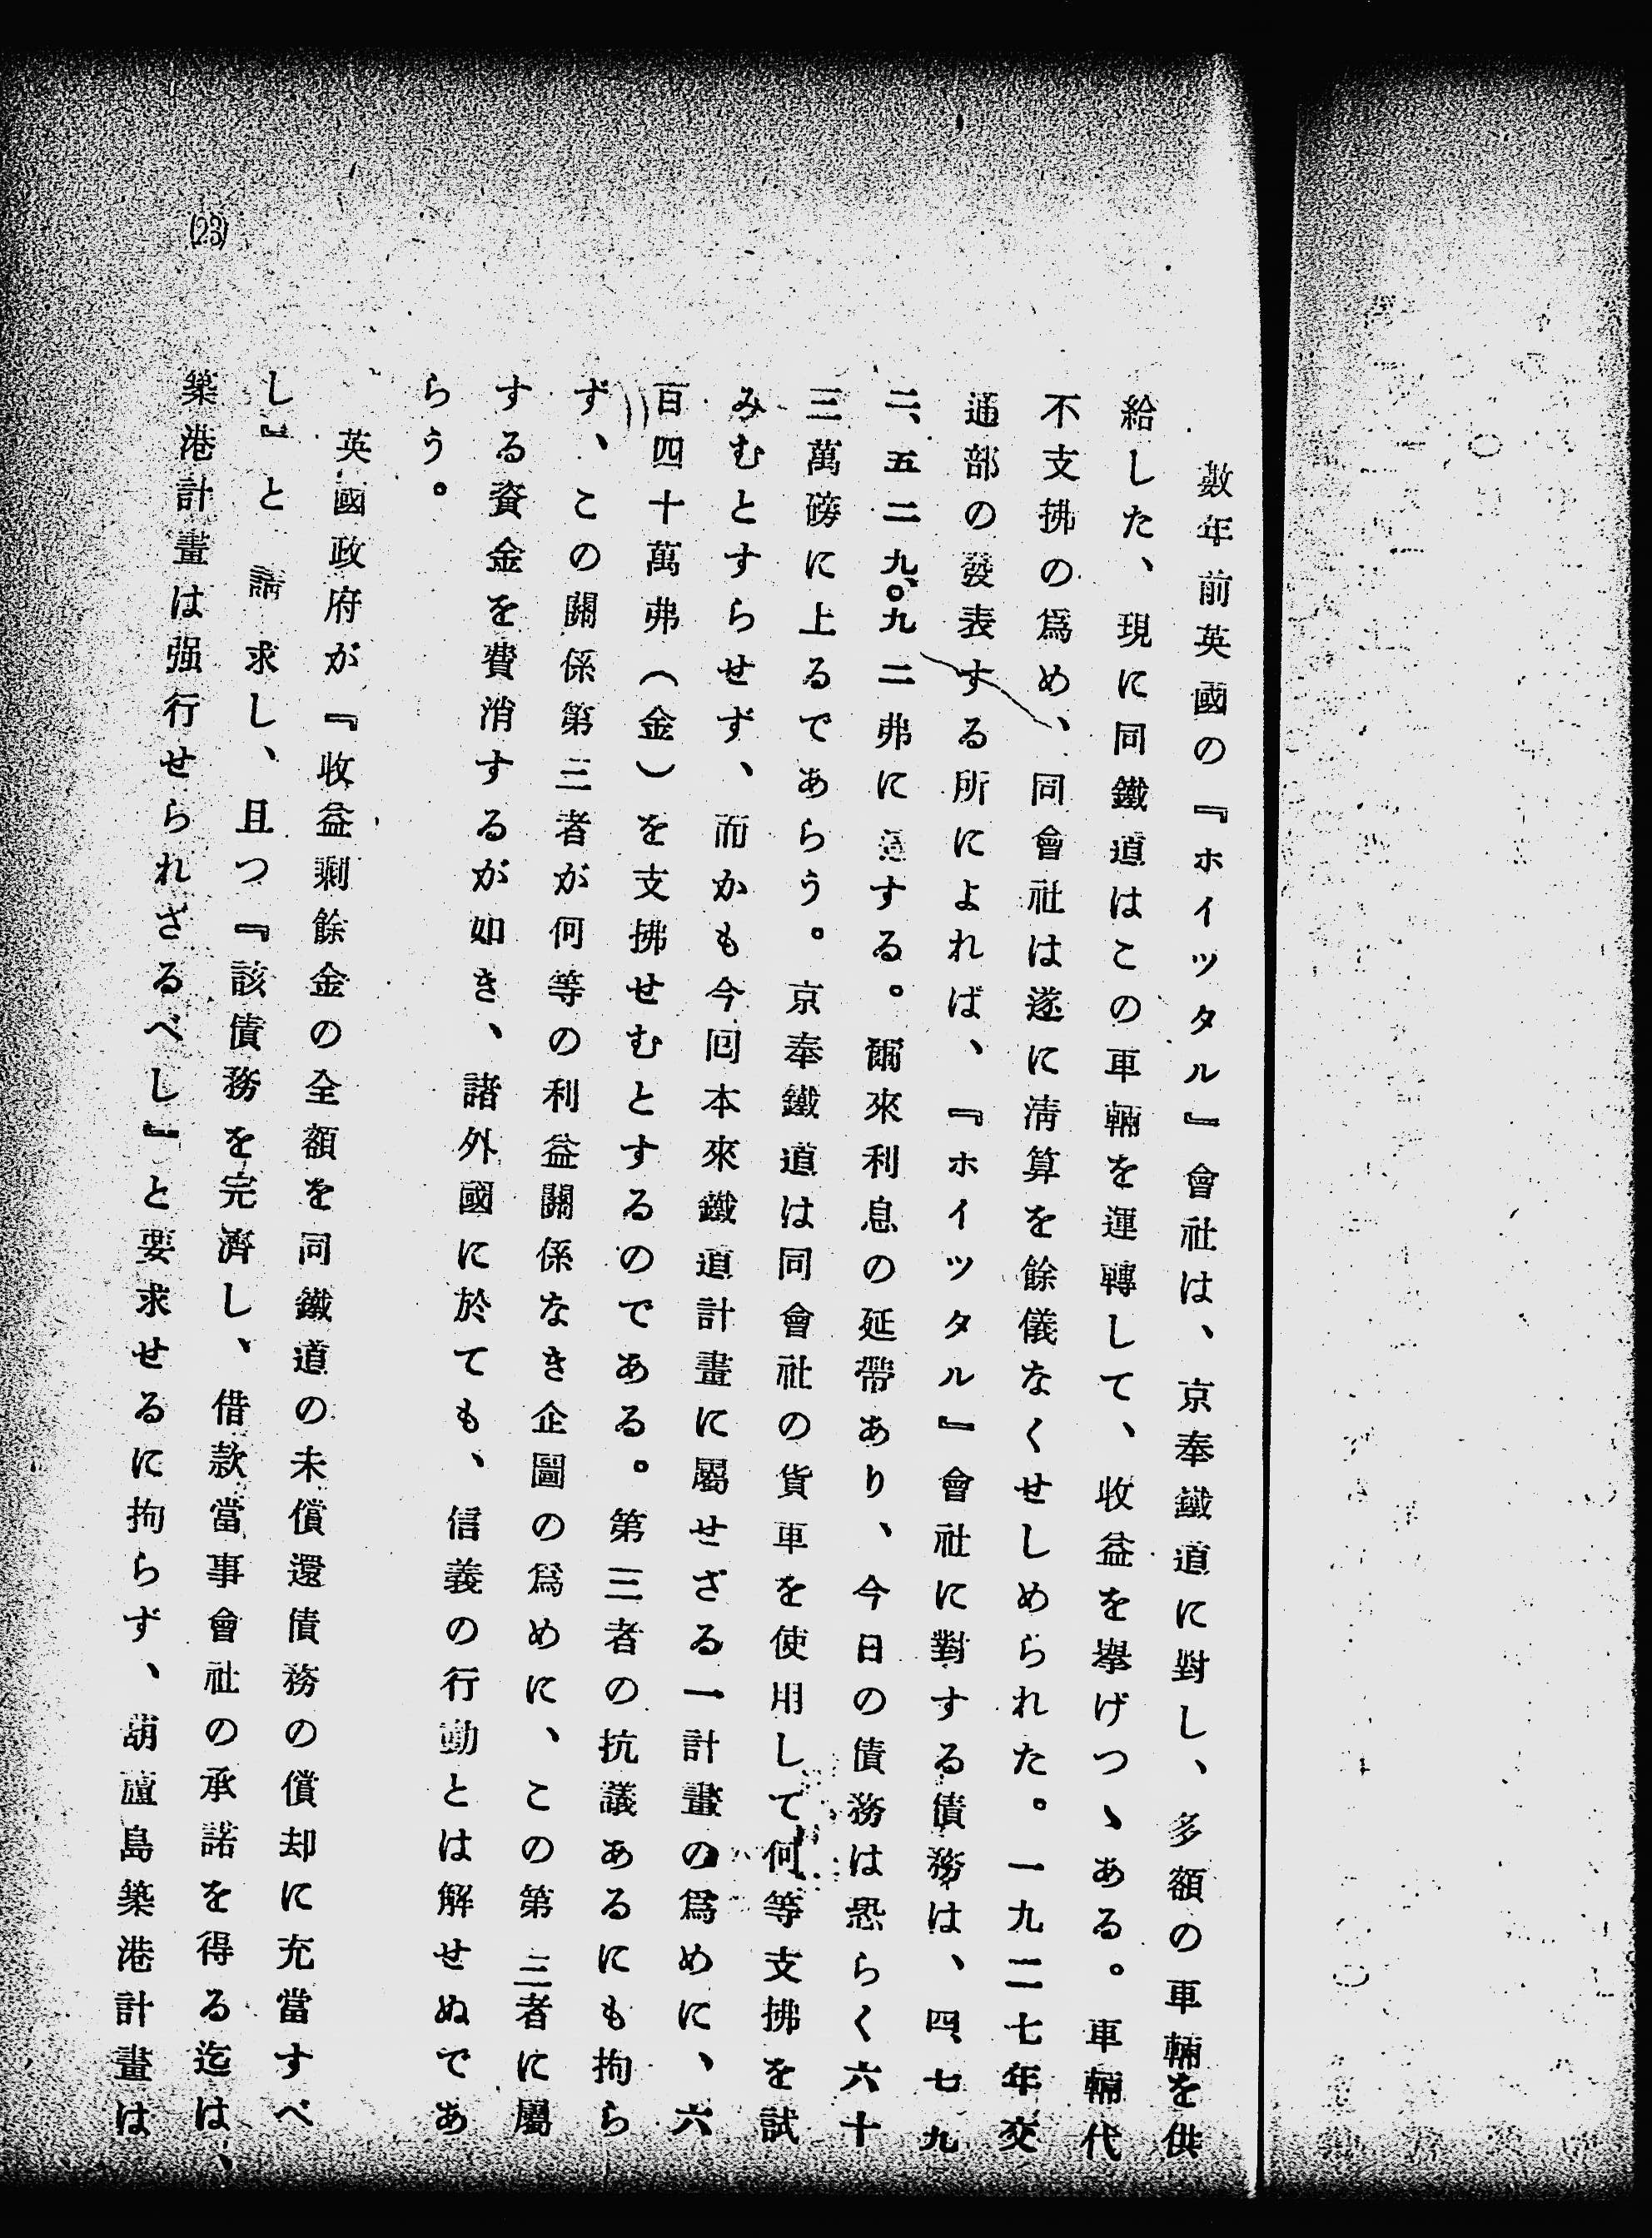 數年前英國の『ホイッタル』會社は、京奉鐵道に對し、多額の車輛を供
給した、現に同鐵道はこの車輛を運轉して、收益を擧げつゝある。車輛代
不支拂の爲め、同會社は遂に淸算を餘儀なくせしめられた。一九二七年交
通部の發表する所によれば、『ホイッタル』會社に對する債務は、四、七九
二、五二九。九二弗に達する。爾來利息の延帶あり、今日の債務は恐らく六十
三萬磅に上るであらう。京奉鐵道は同會社の貨車を使用して何等支拂を試
みむとすらせず、而かも今回本來鐵道計畫に屬せざる一計畫の爲めに、六
百四十萬弗（金）を支拂せむとするのである。第三者の抗議あるにも拘ら
ず、この關係第三者が何等の利益關係なき企圖の爲めに、この第三者に屬
する資金を費消するが如き、諸外國に於ても、信義の行動とは解せぬであ
らう。
英國政府が『收益剩餘金の全額を同鐵道の未償還債務の償却に充當すべ
し』と請求し、且つ『該債務を完濟し、借款當事會社の承諾を得る迄は、
築港計畫は强行せられざるべし』と要求せるに拘らず、葫蘆島築港計畫は
(23)